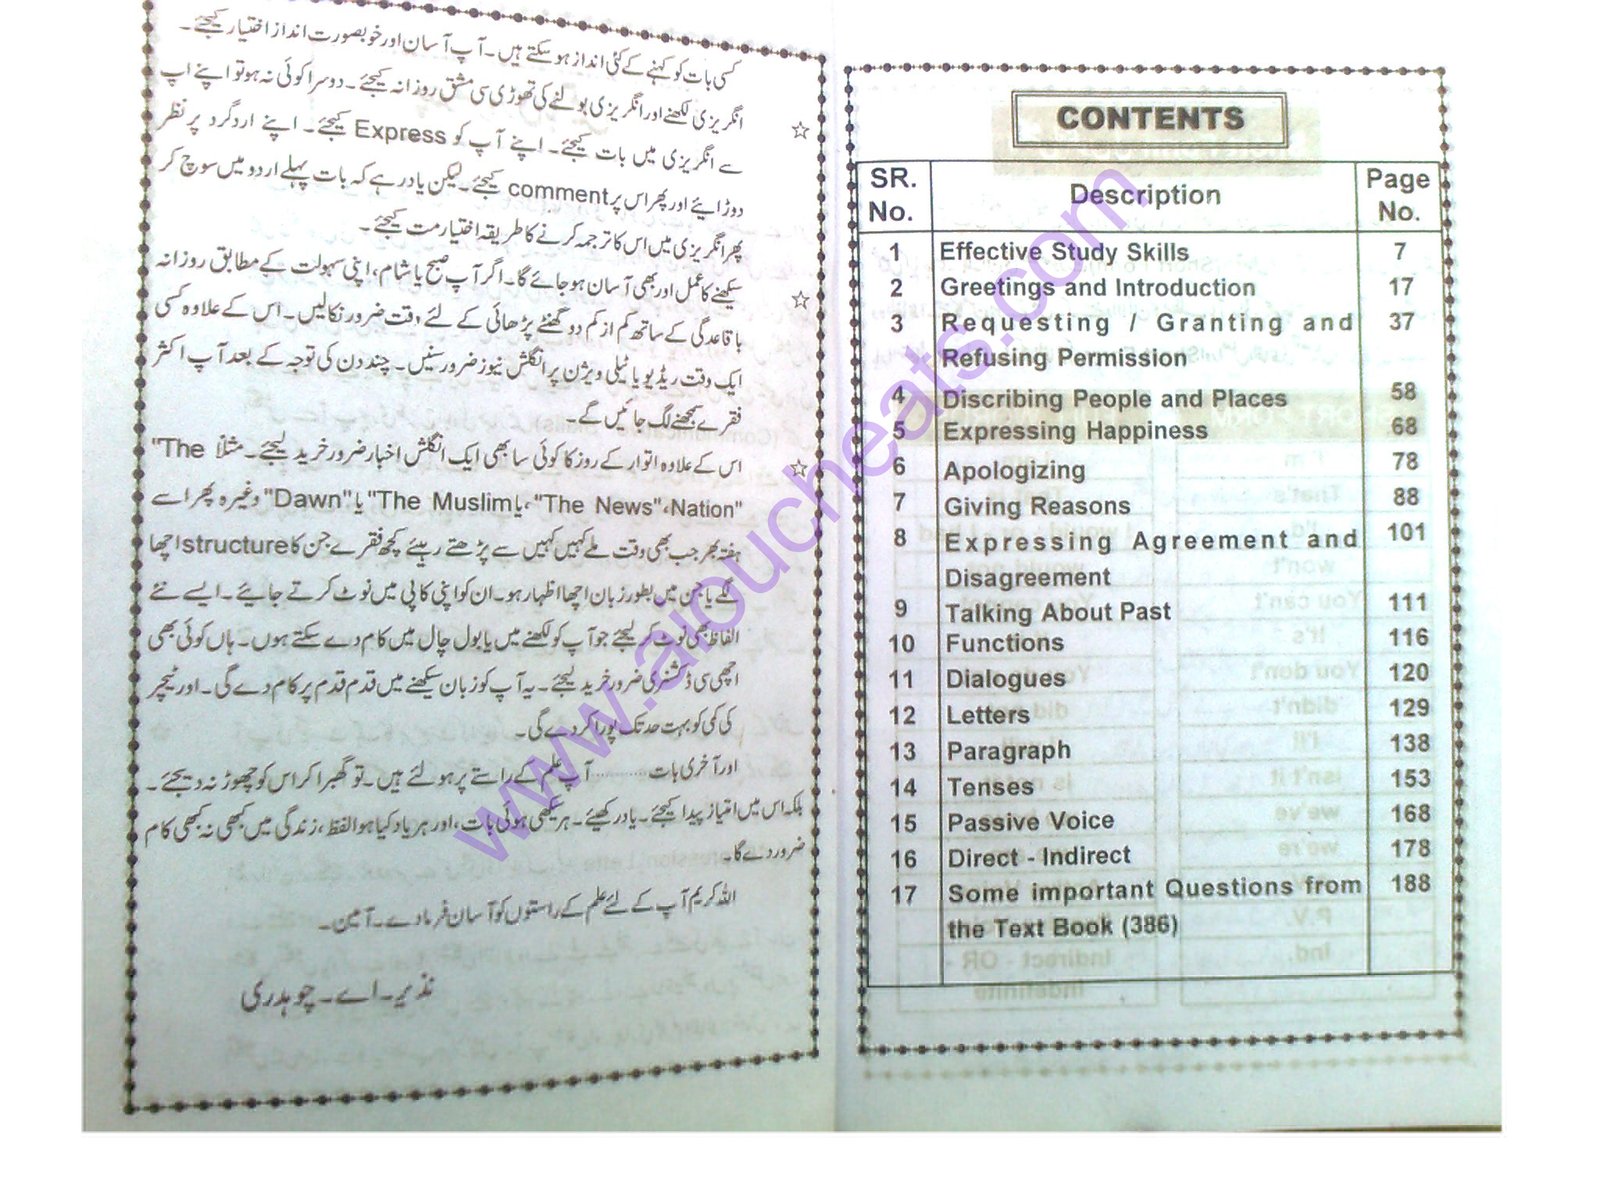 کسی بات کو کہنے کے کئی انداز ہو سکتے ہیں۔ آپ آسان اور خوبصورت انداز اختیار کیجئے۔
☆ انگریزی لکھنے اور انگریزی بولنے کی تھوڑی سی مشق روزانہ کیجئے۔ دوسرا کوئی نہ ہو تو اپنے اپ
سے انگریزی میں بات کیجئے۔ اپنے آپ کو Express کیجئے۔ اپنے اردگرد پر نظر
دوڑائیے اور پھر اس پر comment کیجئے۔ لیکن یاد رہے کہ بات پہلے اردو میں سوچ کر
پھر انگریزی میں اس کا ترجمہ کرنے کا طریقہ اختیار مت کیجئے۔
☆ سیکھنے کا عمل اور بھی آسان ہو جائے گا۔ اگر آپ صبح یا شام، اپنی سہولت کے مطابق روزانہ
باقاعدگی کے ساتھ کم از کم دو گھنٹے پڑھائی کے لئے وقت ضرور نکالیں۔ اس کے علاوہ کسی
ایک وقت ریڈیو یا ٹیلی ویژن پر انگلش نیوز ضرور سنیں۔ چند دن کی توجہ کے بعد آپ اکثر
فقرے سمجھنے لگ جائیں گے۔
☆ اس کے علاوہ اتوار کے روز کا کوئی سا بھی ایک انگلش اخبار ضرور خرید لیجئے۔ مثلاً "The
Nation"، "The News"، یا The Muslim" یا "Dawn" وغیرہ پھر اسے
ہفتہ بھر جب بھی وقت ملے کہیں کہیں سے پڑھتے رہیئے کچھ فقرے جن کا structure اچھا
لگے یا جن میں بطور زبان اچھا اظہار ہو۔ ان کو اپنی کاپی میں نوٹ کرتے جائیے۔ ایسے نئے
الفاظ بھی نوٹ کر لیجئے جو آپ کو لکھنے میں یا بول چال میں کام دے سکتے ہوں۔ ہاں کوئی بھی
اچھی سی ڈکشنری ضرور خرید لیجئے۔ یہ آپ کو زبان سیکھنے میں قدم قدم پر کام دے گی۔ اور ٹیچر
کی کمی کو بہت حد تک پورا کر دے گی۔
اور آخری بات .......... آپ علم کے راستے پر ہو لئے ہیں۔ تو گھبرا کر اس کو چھوڑ نہ دیجئے۔
بلکہ اس میں امتیاز پیدا کیجئے۔ یاد رکھیئے۔ ہر سیکھی ہوئی بات، اور ہر یاد کیا ہوا لفظ، زندگی میں کبھی نہ کبھی کام
ضرور دے گا۔
اللہ کریم آپ کے لئے علم کے راستوں کو آسان فرما دے۔ آمین۔
نذیر۔ اے۔ چوہدری
CONTENTS
SR. No. Description Page No.
1 Effective Study Skills 7
2 Greetings and Introduction 17
3 Requesting / Granting and 37
Refusing Permission
4 Discribing People and Places 58
5 Expressing Happiness 68
6 Apologizing 78
7 Giving Reasons 88
8 Expressing Agreement and 101
Disagreement
9 Talking About Past 111
10 Functions 116
11 Dialogues 120
12 Letters 129
13 Paragraph 138
14 Tenses 153
15 Passive Voice 168
16 Direct - Indirect 178
17 Some important Questions from 188
the Text Book (386)
www.aioucheats.com